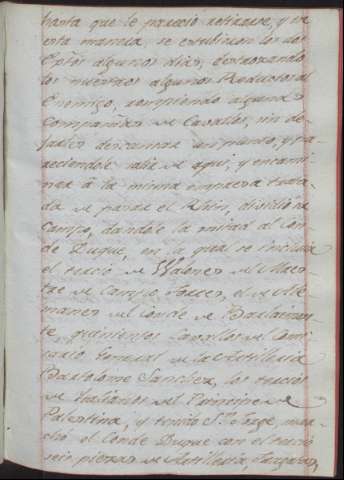 hasta que le pareció retirarse, y en
esta manera se estubieron los dos
Eptos algunos dias, destrozando
los nuestros algunos Reductos al
Enemigo, rompiendo algunas
compañias de Cavallos, sin de-
jarles descansar un punto, y pa-
reciendole salir de aqui, y encami-
narse à la misma empresa trata-
da de pasar el Rhin, dividió su
Campo, dandole la mitad al Con-
de Duque, en la qual se incluia
el tercio de Walones del Maes-
tre de Campo Torres, el de Ale-
manes del Conde de Barlaimon-
te, quinientos Cavallos del Comi-
sario General de la Artilleria
Bartolome Sanchez, los tercios
de Italianos del Principe de
Palestina, y Toralto Sn. Jorge, mar-
chó el Conde Duque con el tercio
seis piezas de Artilleria,